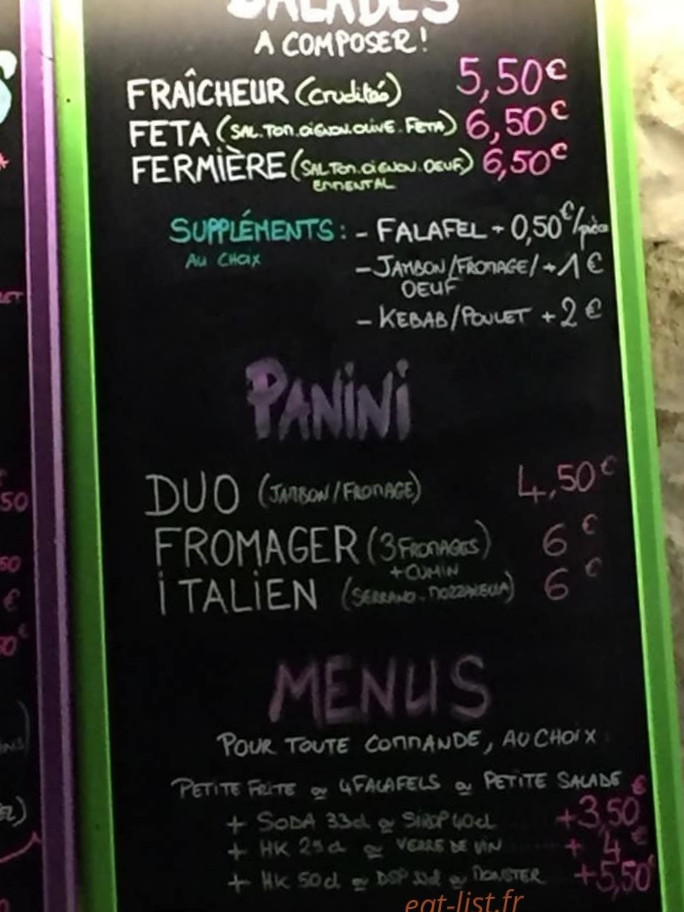 SALADES
A COMPOSER!
FRAÎCHEUR (crudités) 5,50€
FETA (SAL.TOM.OIGNON.OLIVE.FETA) 6,50€
FERMIÈRE (SAL.TOM.OIGNON.OEUF) 6,50€
EMMENTAL
SUPPLÉMENTS: - FALAFEL + 0,50€/pièce
AU CHOIX
- JAMBON/FROMAGE/ +1€
OEUF
- KEBAB/POULET +2€
PANINI
DUO (JAMBON/FROMAGE) 4,50€
FROMAGER (3 FROMAGES) 6€
+CUMIN
ITALIEN (SERRANO-MOZZARELLA) 6€
MENUS
POUR TOUTE COMMANDE, AU CHOIX
PETITE FRITE ou 4 FALAFELS ou PETITE SALADE
+ SODA 33cl ou SIROP 40cl +3,50€
+ HK 25cl ou VERRE DE VIN + 4€
+ HK 50cl ou DSP 33cl ou MONSTER +5,50€
eat-list.fr